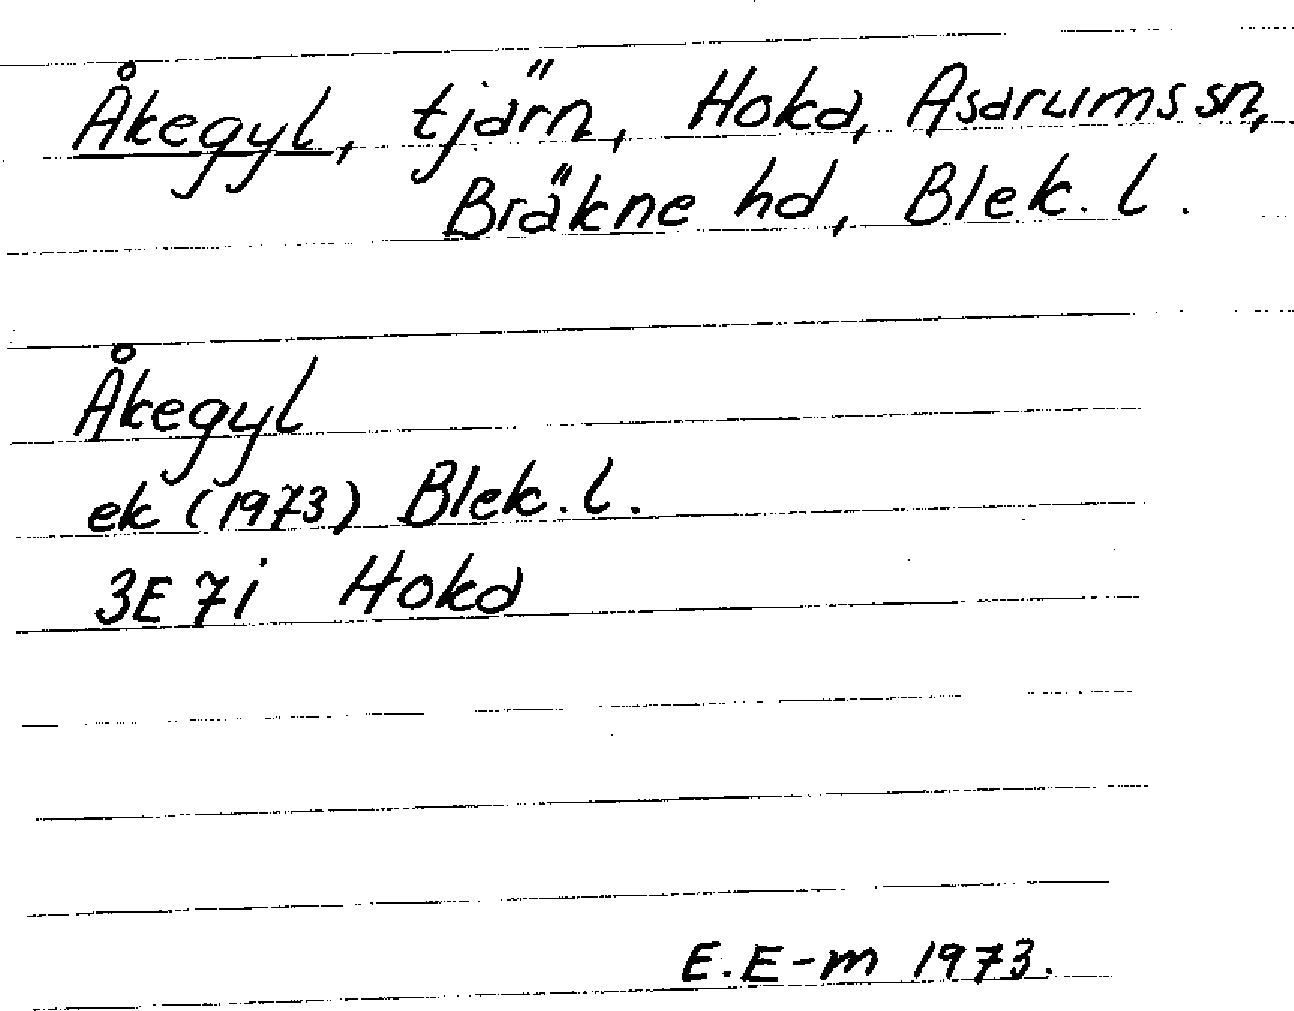 Åkegyl, tjärn, Hoka, Asarums sn,
Bräkne hd, Blek. l.
Åkegyl
ek (1973) Blek. l.
3E 7i Hoka
E. E-m 1973.